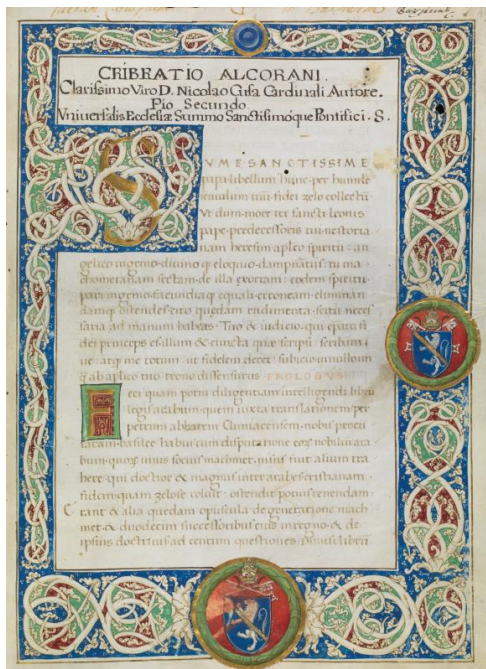 CRIBRATIO ALCORANI.
Clarissimo Viro D. Nicolao Cusa Cardinali Autore.
Pio Secundo
Vniuersalis Ecclesiæ Summo Sanctissimóque Pontifici. S.
SVME SANCTISSIME
papa libellum hunc per humile
seruulum tuũ fidei zelo collectũ
Vt dum more ter sancti leonis
pape predecessoris tui nestoria
nam heresim aplico spiritu an
gelico ingenio diuino eloquio
sectam de illa exortam eodem spiritu
pari ingenio facundia equali erroneam
ostendes cito quedam rudimenta scitu neces
saria ad manum habeas Tuo iudicio qui
dei princeps es illum & cuncta quæ scripsi scribam
ue atque me totum ut fidelem decet subicio
ab aplico tuo trono dissensurus PROLOGVS
Feci quam potui diligentiam intelligendi librũ
legis arabum quem iuxta translationem per
petrum abbatem Cluniacensem nobis
basilee habui cum disputatione nobiliũ ara
bum unus socius machmet nisus fuit alium tra
here qui doctior & magnus inter arabes cristianam
fidem quam zelose coluit ostendit pocius tenendam
Erant & alia quedam opuscula de generatione mach
met & duodecim successoribus eius in regno & de
ipsius doctrina ad centum questiones